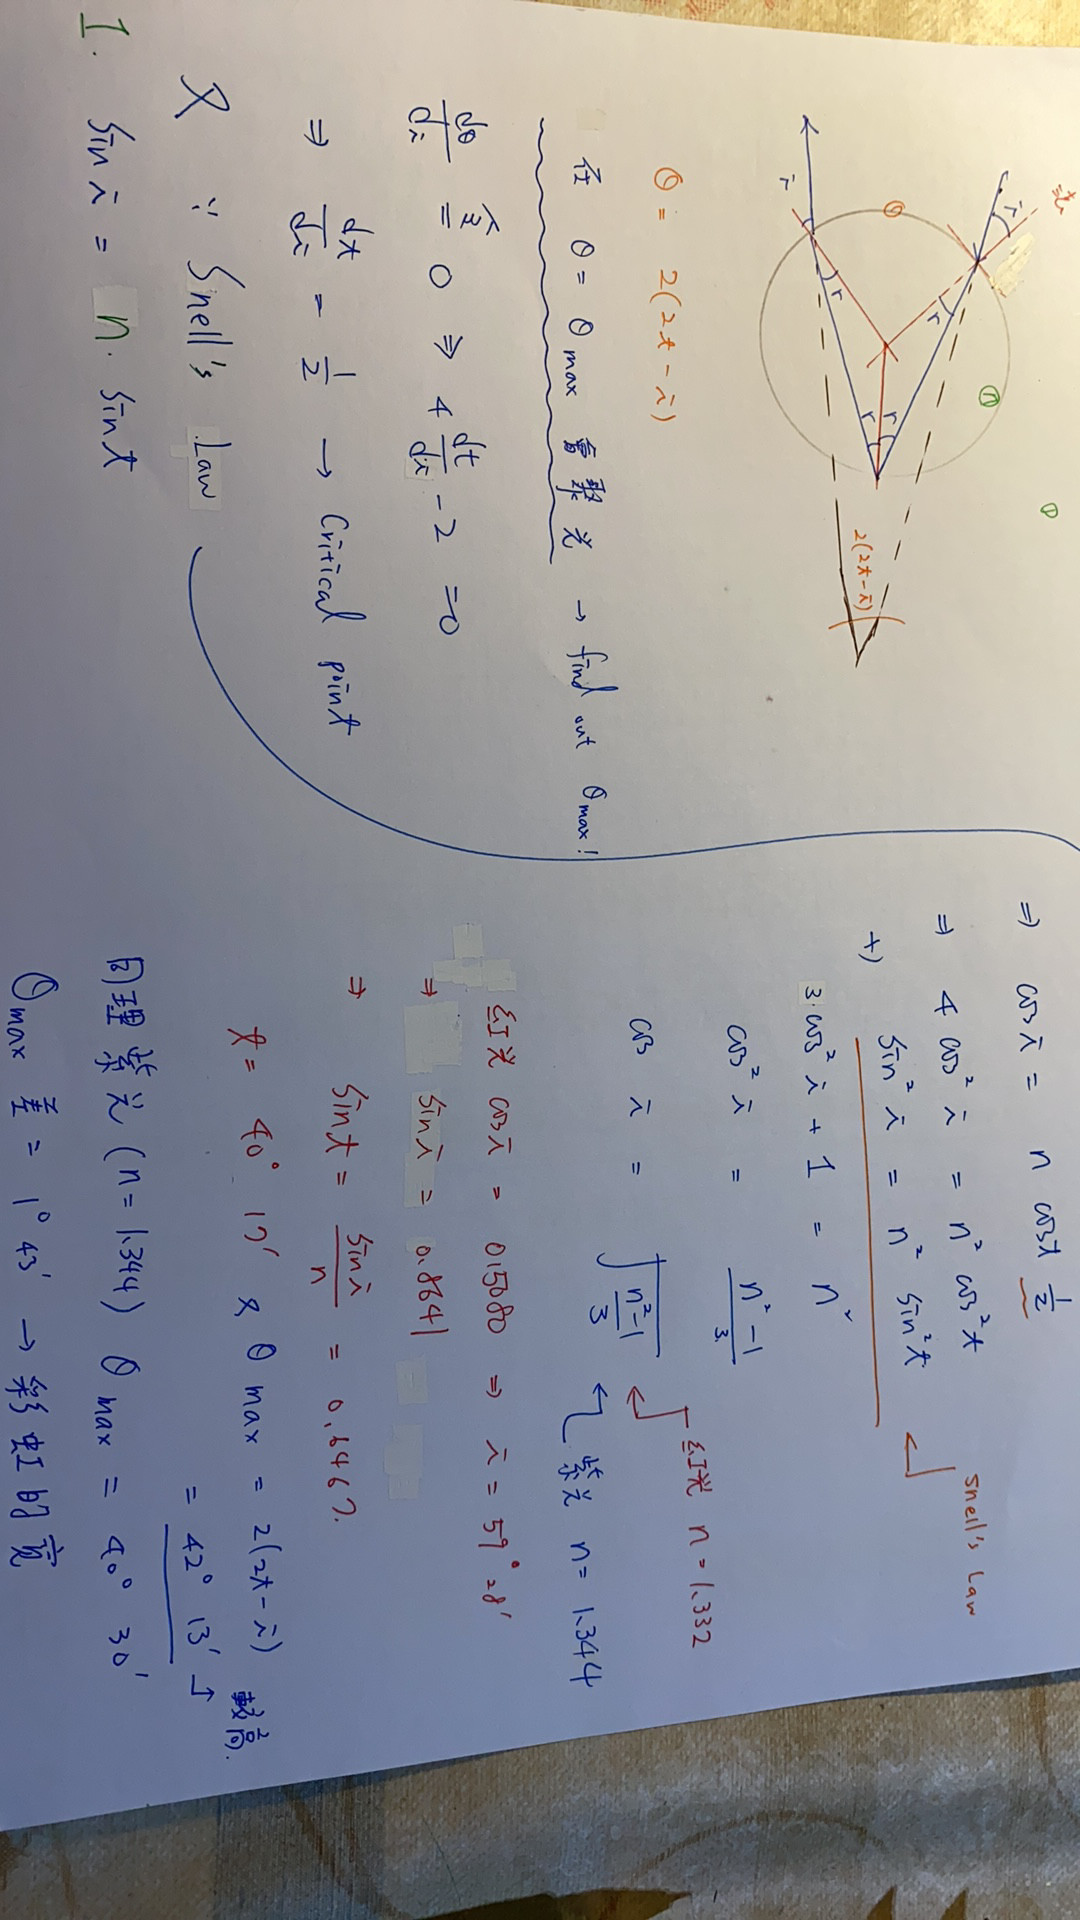 i
r
r
r
r
i
2(2t-i)
θ = 2(2t-i)
在 θ = θmax 會聚光 → find out θmax!
dθ/di 令= 0 ⇒ 4 dt/di - 2 = 0
⇒ dt/di = 1/2 → Critical point
又 ∵ Snell's Law
1. sin i = n · sin t
⇒ cos i = n cos t 1/2
⇒ 4 cos² i = n² cos² t
+) sin² i = n² sin² t
Snell's Law
3·cos² i + 1 = n²
cos² i = n²-1/3
cos i = √n²-1/3
紅光 n = 1.332
紫光 n = 1.344
紅光 cos i = 0.5080 ⇒ i = 59° 28'
⇒ sin i = 0.8641
⇒ sin t = sin i/n = 0.6467
t = 40° 17' & θmax = 2(2t-i)
= 42° 13' → 較高.
同理 紫光 (n=1.344) θmax = 40° 30'
θmax 差 = 1° 43' → 彩虹的寬